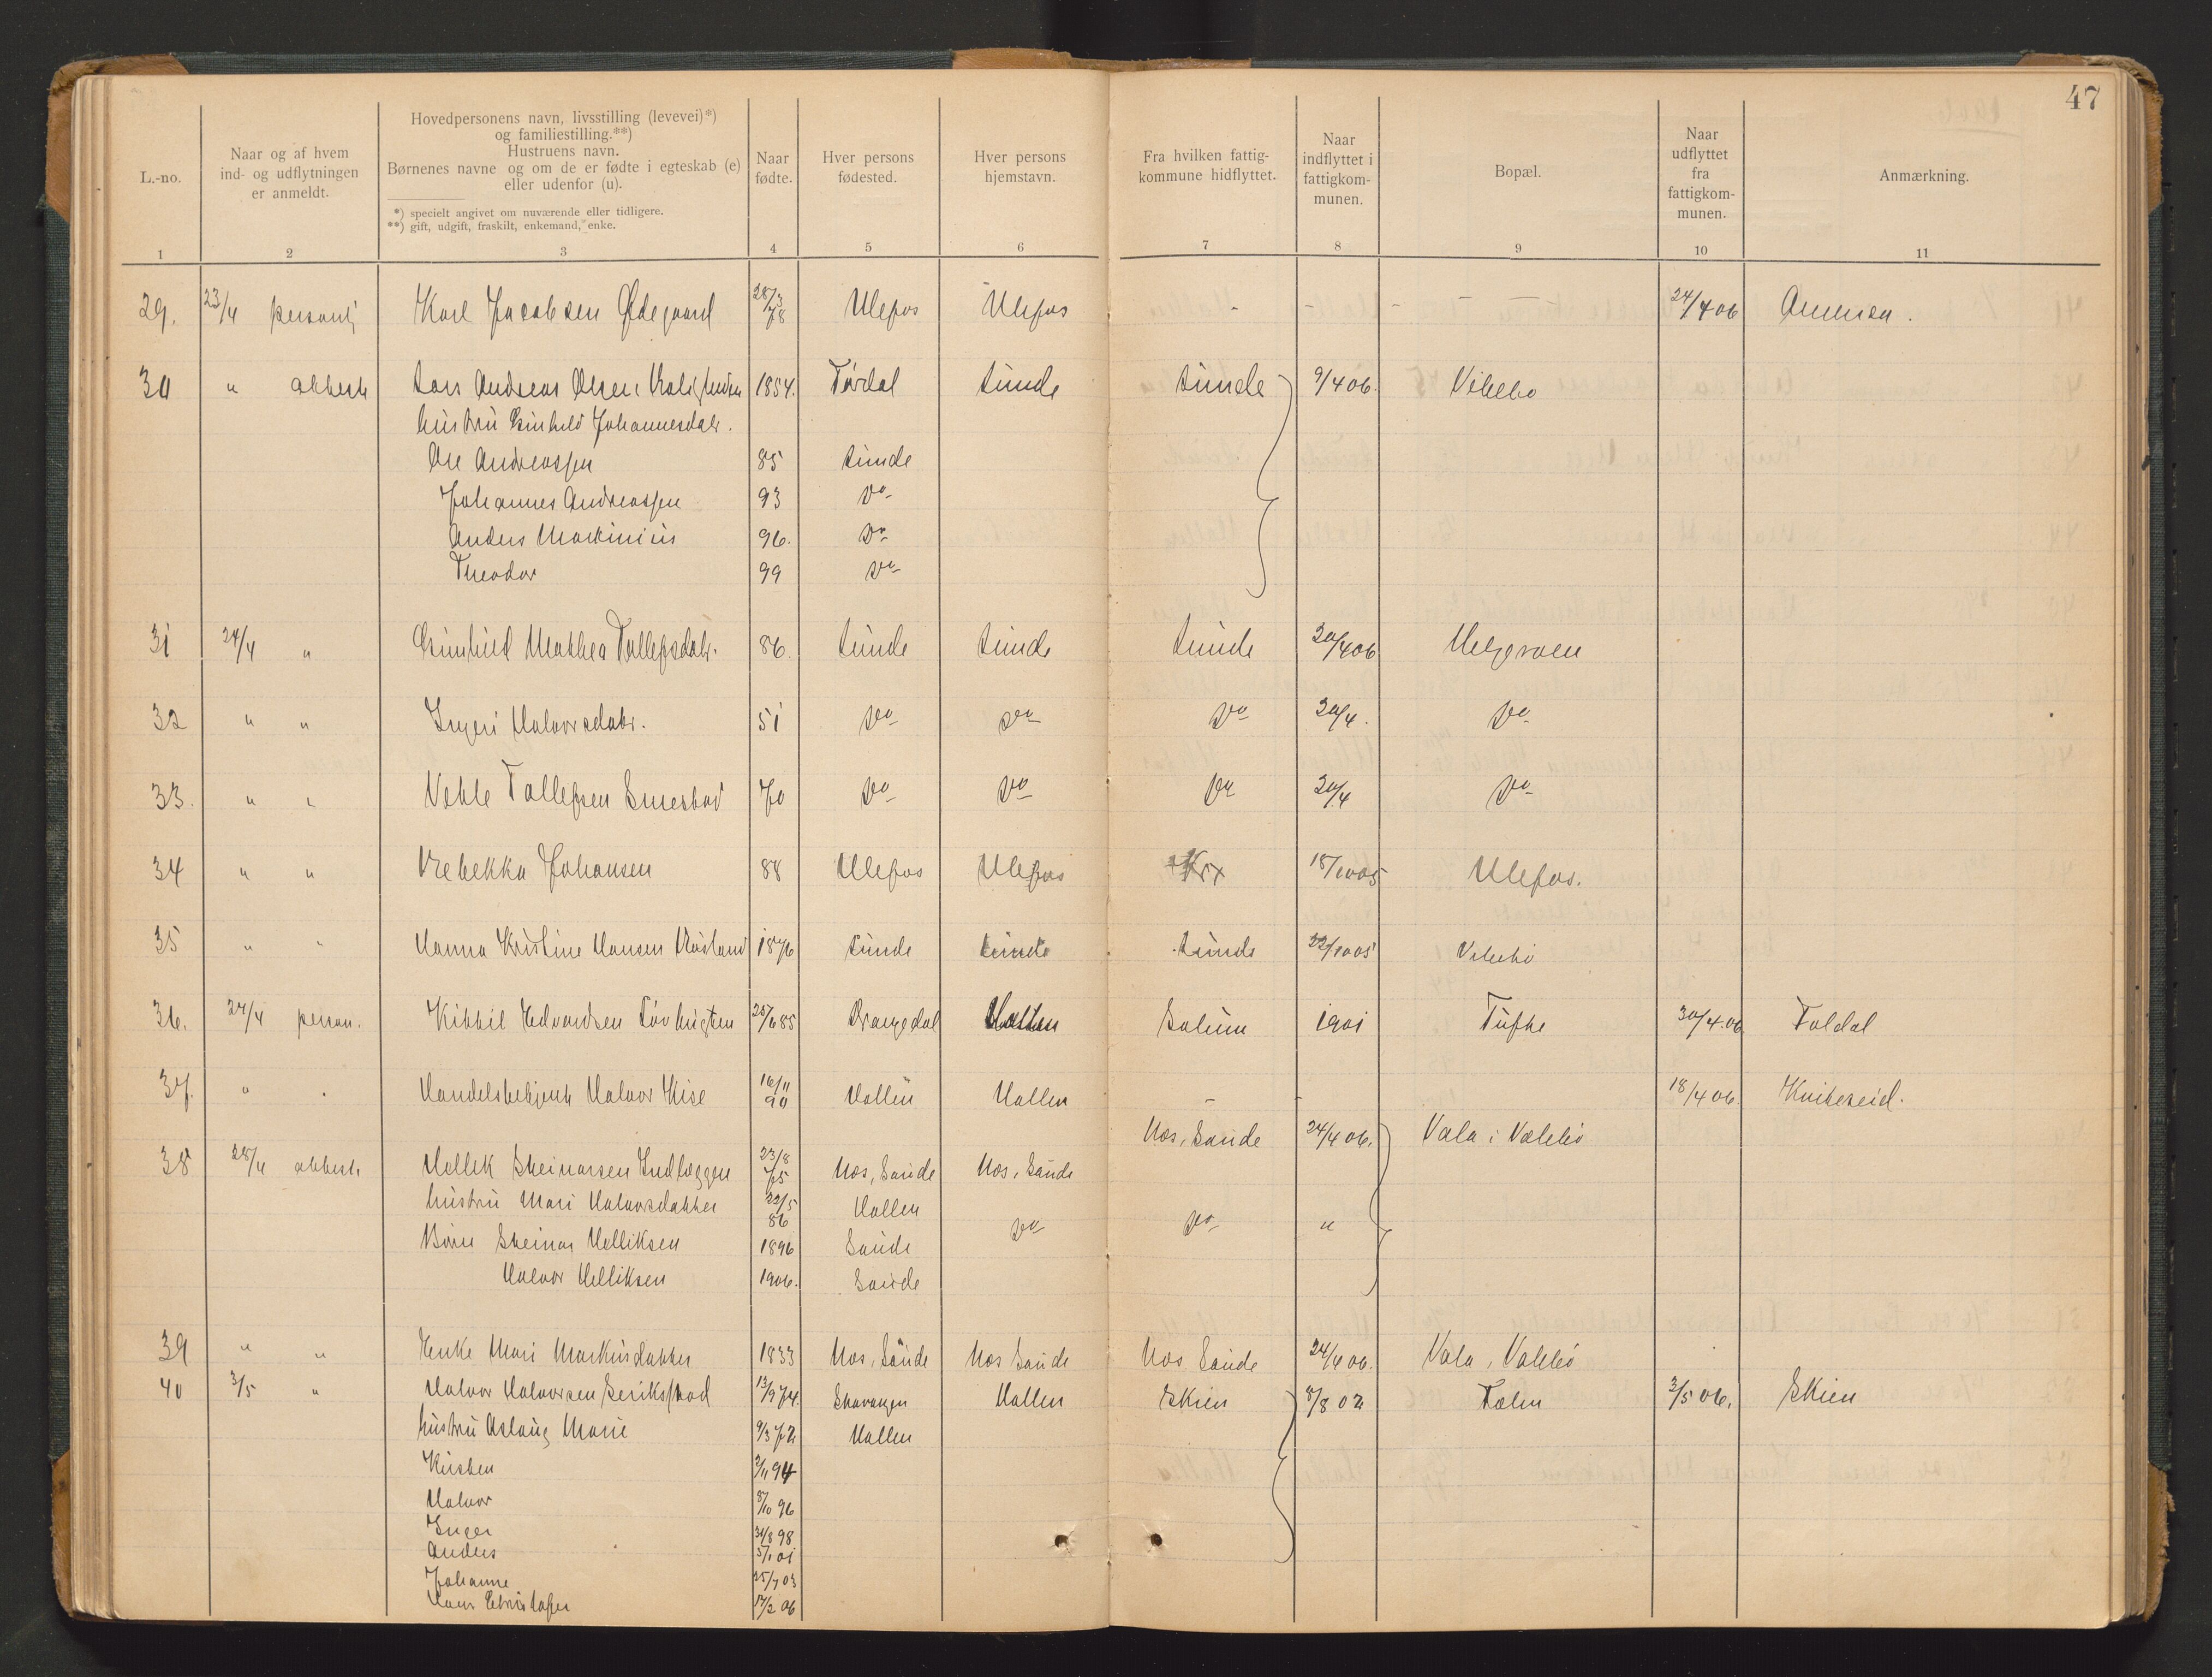 47
L.-no.
Naar og af hvem
ind- og udflytningen
er anmeldt.
Hovedpersonens navn, livsstilling (levevei)*)
og familiestilling.**)
Hustruens navn.
Børnenes navne og om de er fødte i egteskab (e)
eller udenfor (u).
*) specielt angivet om nuværende eller tidligere.
**) gift, udgift, fraskilt, enkemand, enke.
Naar
fødte.
Hver persons
fødested.
Hver persons
hjemstavn.
Fra hvilken fattig-
kommune hidflyttet.
Naar
indflyttet i
fattigkom-
munen.
Bopæl.
Naar
udflyttet
fra
fattigkom-
munen.
Anmærkning.
1 2 3 4 5 6 7 8 9 10 11
29. 23/4 personlj Karl Jacobsen Ødegaard 28/3 78 Ulefos Ulefos - - - - - 24/4 06
30 " attest Lars Andreas Olsen 1854. Tørdal Lunde Lunde 9/4 06. Vibebo
hustru Gunhild Johannesdatr.
Ole Andreassen 85 Lunde
Johannes Andreassen 93 Do
Anders Markinius 96. Do
Theodor 99 Do
31 24/4 " Gunhild Mathea Tollefsdatr. 86. Lunde Lunde Lunde 20/4 06 Helgeroen
32 " " Ingeri Halvorsdatr. 51 Do Do Do 20/4. Do
33. " " Vetle Tollefsen Smestad 70 Do Do Do 20/4 Do
34 " " Rebekka Johansen 88 Ulefos Ulefos Kr. 18/10 05 Ulefos.
35 " " Hanna Kristine Hansen 1876 Lunde Lunde Lunde 22/10 05
36. 27/4 person. Kittil Edvardsen 85 Drangedal Hollen Solum 1901 Tufte 30/4.06 Foldal
37. " " Handelsbetjent Halvor Kise 16/11 90 Hollen Hollen - - 18/4 06. Kviteseid.
38 28/4 attest Hellek Steinarsen 23/8 75 Nes, Saude Nes, Saude Nes, Saude 24/4 06. Vala i Valebø
hustru Mari Halvorsdatter 22/5 86 Hollen Do Do "
Børn Steinar Helliksen 1896 Saude
Halvor Helliksen 1906. Saude
39 " " Enke Mari Markusdatter 1833 Nes, Saude Nes Saude Nes Saude 24/4 06. Vala, Valebø
40 3/5 " Halvor Halvorsen 13/9 74. Stavanger Hollen Skien 8/8 02 Tælen 3/5 06. Skien
hustru Aslaug Marie 9/3 72 Hollen
Kirsten 2/11 94
Halvor 8/10 96
Inger 31/8 98
Anders 5/1 01
Johanne 25/7 03
Hans Christofer 17/2 06